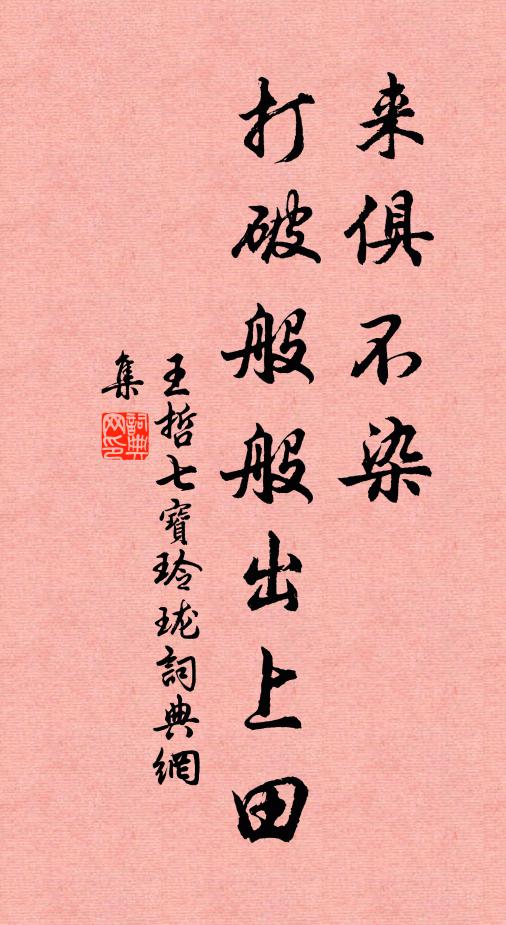 来俱不染
打破般般出上田
王哲七寶玲珑詞典網
集
詞典网印